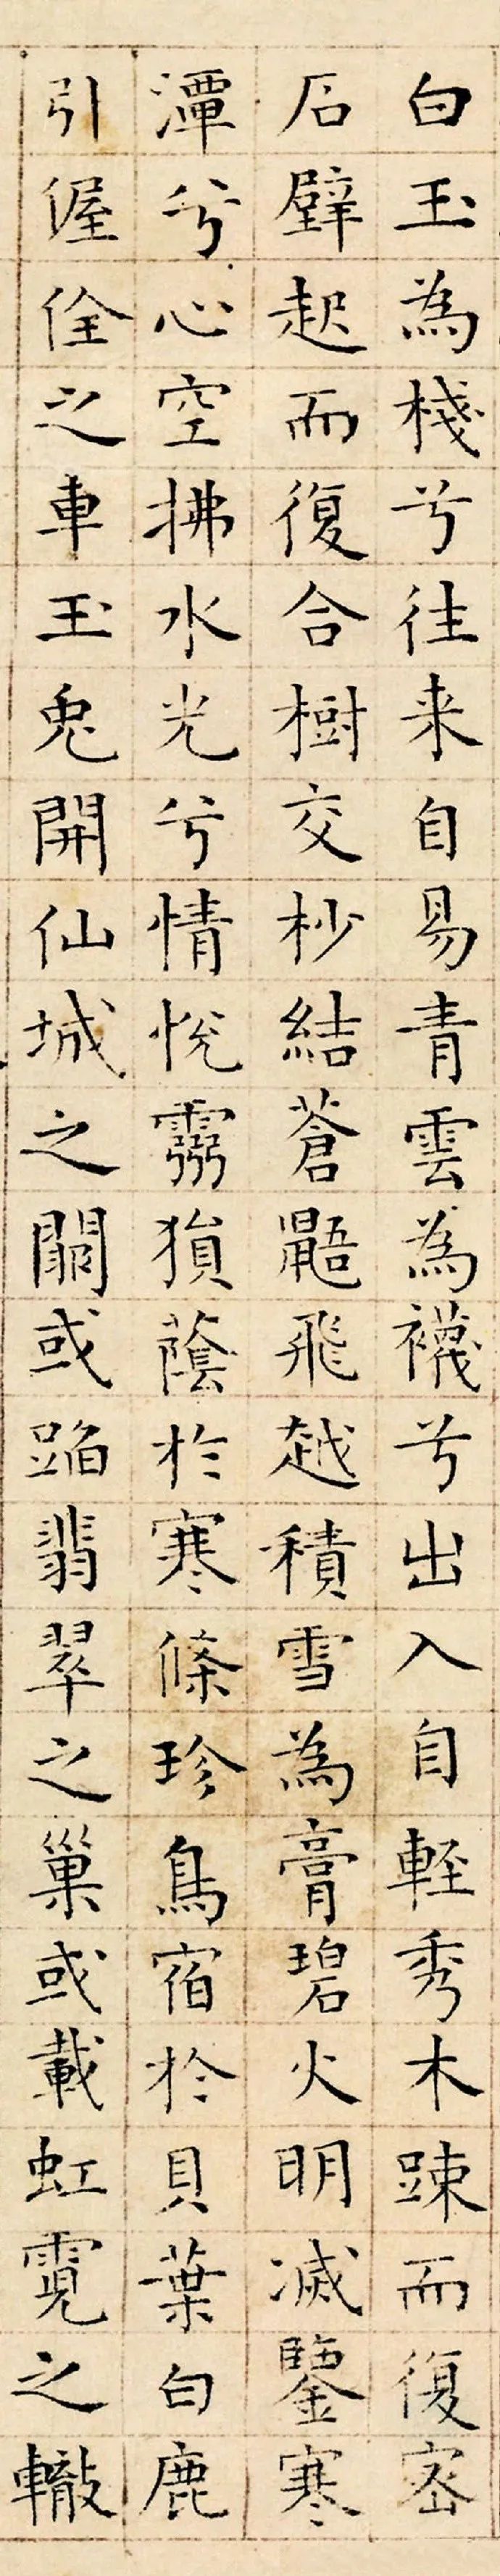 白玉為棧兮往来自易青雲為襪兮出入自輕秀木踈而復密
石壁起而復合樹交杪結蒼鼯飛越積雪為膏碧火明滅鑒寒
潭兮心空拂水光兮情悅靈猨蔭於寒條珍鳥宿於貝葉白鹿
引偓佺之車玉兔開仙城之闕或蹈翡翠之巢或載虹霓之轍